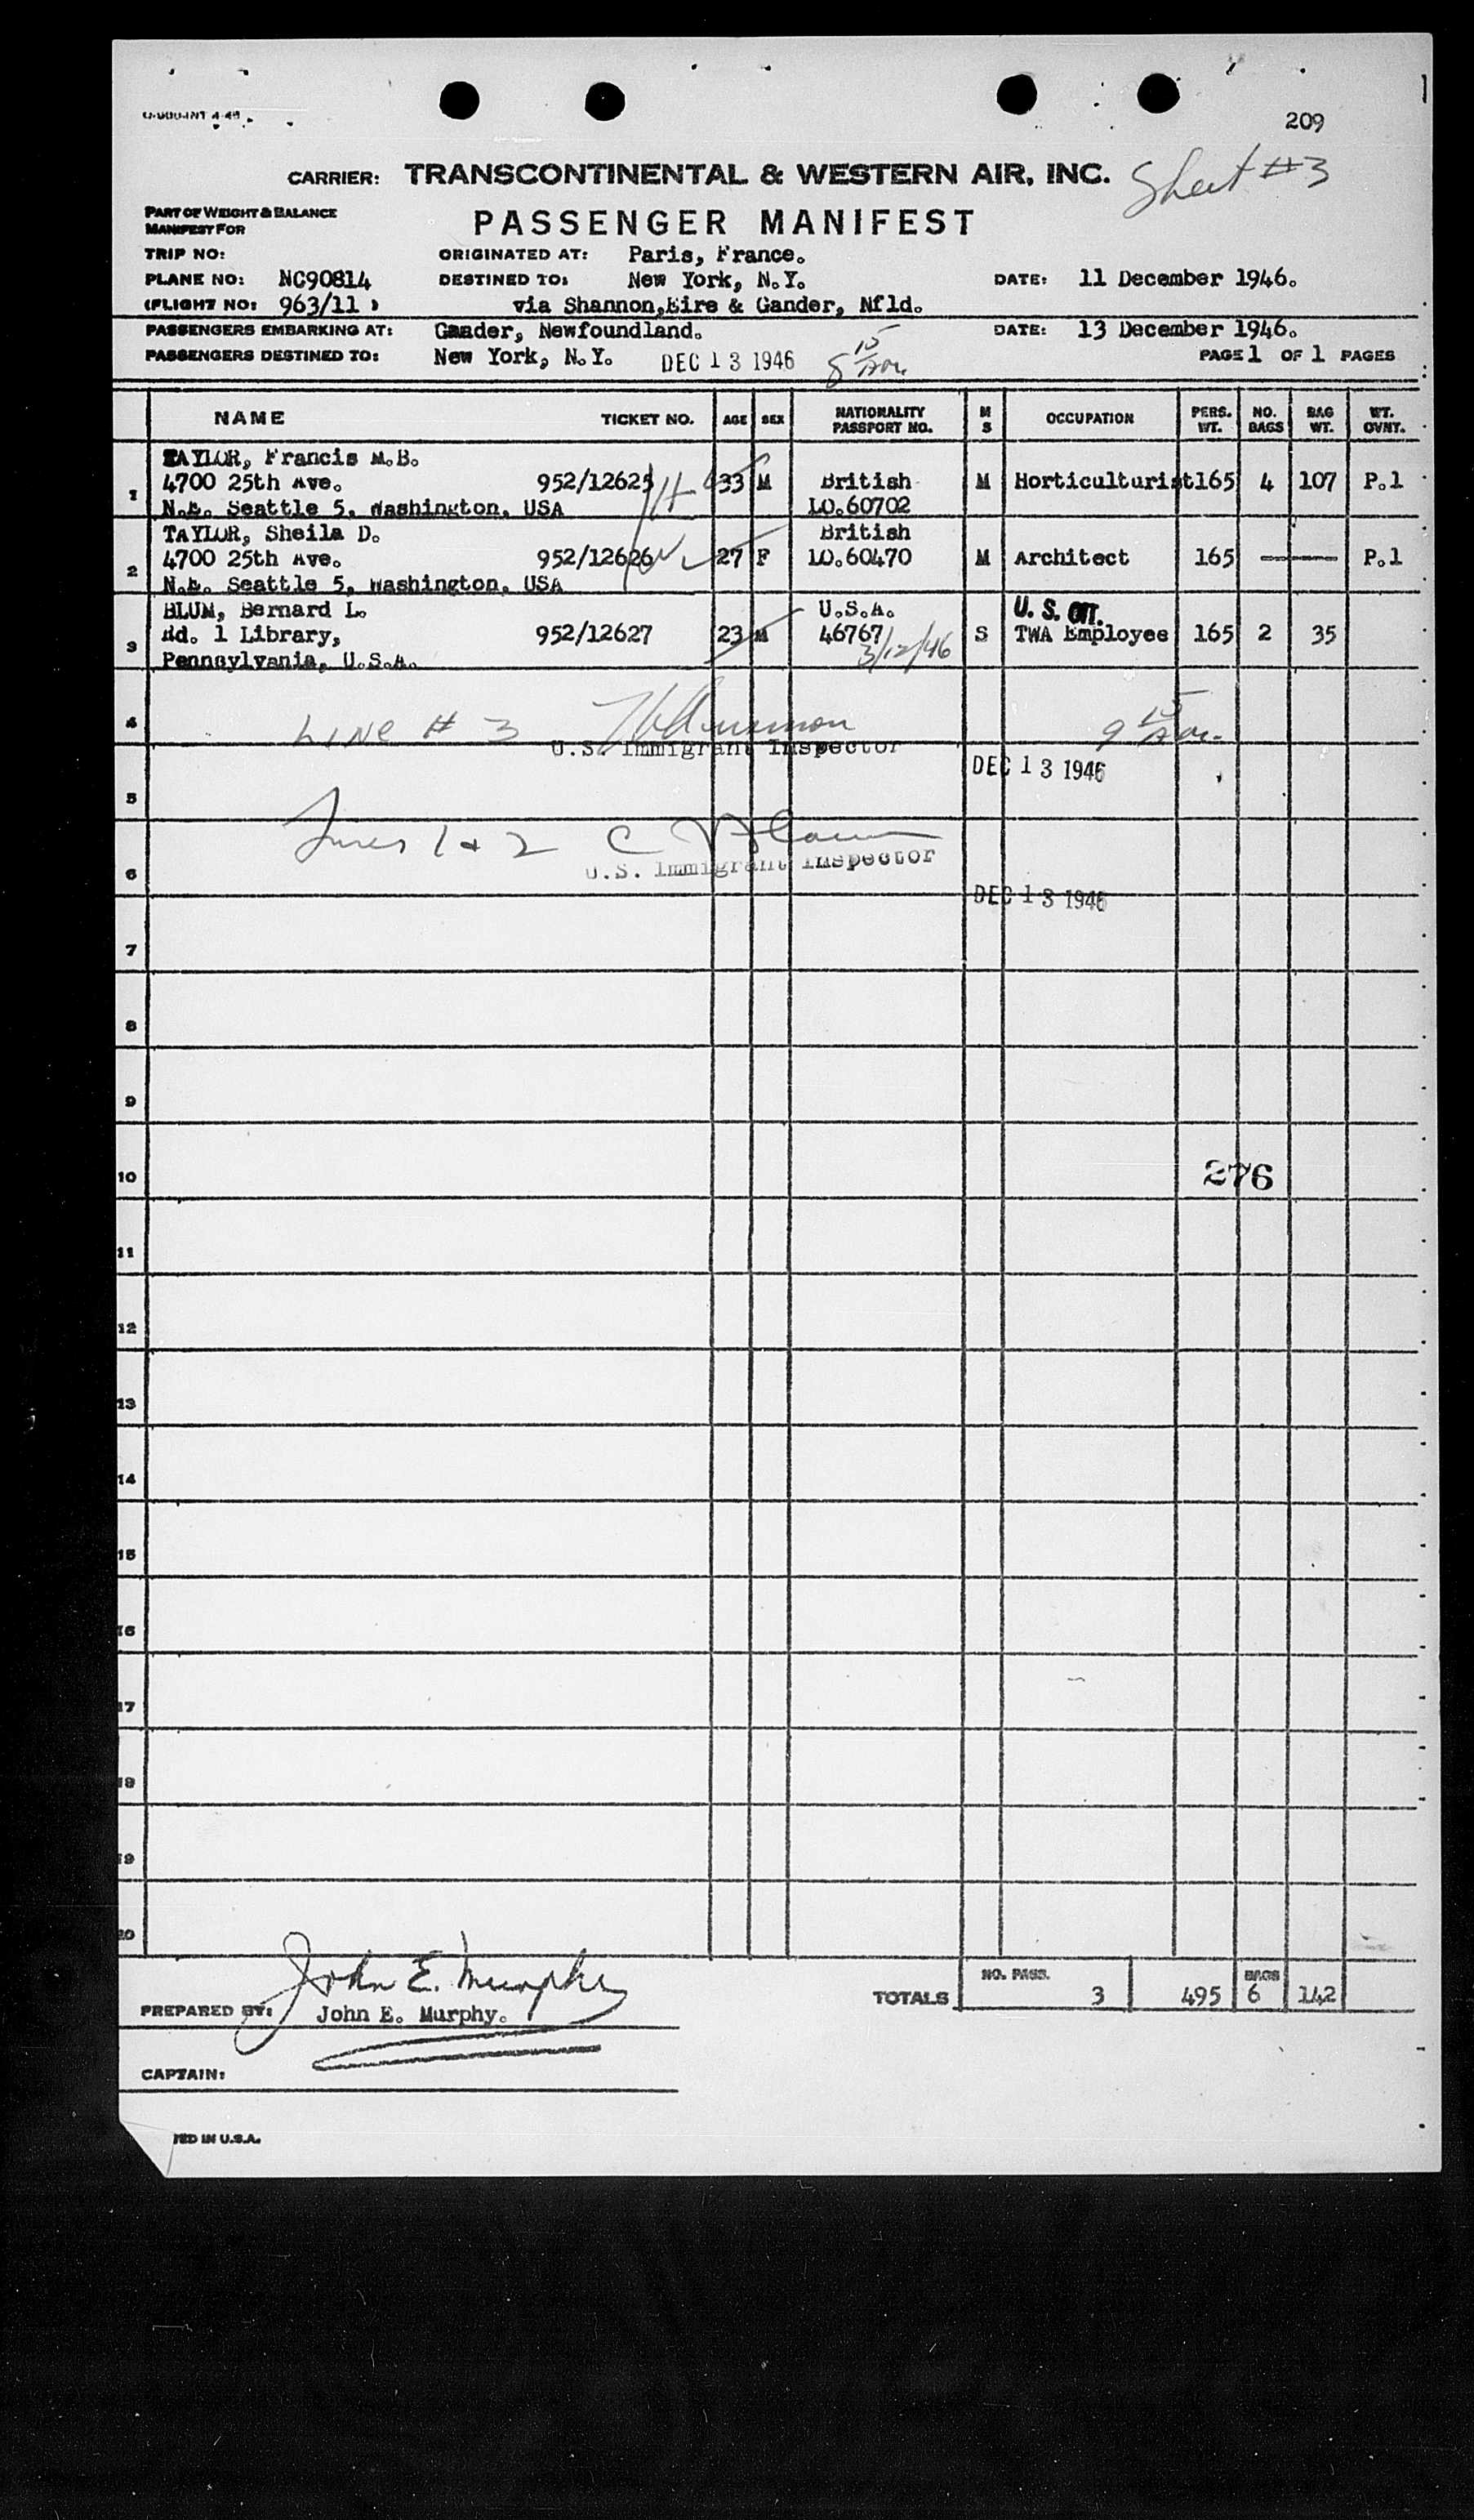 209
CARRIER: TRANSCONTINENTAL & WESTERN AIR, INC. Sheet #3
PART OF WEIGHT & BALANCE
MANIFEST FOR
PASSENGER MANIFEST
TRIP NO: ORIGINATED AT: Paris, France.
PLANE NO: NC90814 DESTINED TO: New York, N.Y. DATE: 11 December 1946.
(FLIGHT NO: 963/11 ) via Shannon,Eire & Gander, Nfld.
PASSENGERS EMBARKING AT: Gander, Newfoundland. DATE: 13 December 1946.
PASSENGERS DESTINED TO: New York, N.Y. DEC 13 1946 8 15 PAGE 1 OF 1 PAGES
NAME TICKET NO. AGE SEX NATIONALITY PASSPORT NO. M S OCCUPATION PERS. WT. NO. BAGS BAG WT. WT. OVNT.
TAYLOR, Francis M.B.
1 4700 25th Ave. 952/12625 33 M British M Horticulturist 165 4 107 P.1
N.E. Seattle 5, Washington, USA LO.60702
TAYLOR, Sheila D. British
2 4700 25th Ave. 952/12626 27 F LO.60470 M Architect 165 P.1
N.E. Seattle 5, Washington, USA
BLUM, Bernard L. U.S.A. U.S. CIT.
3 Rd. 1 Library, 952/12627 23 M 46767 S TWA Employee 165 2 35
Pennsylvania, U.S.A. 3/12/46
4 LINE # 3 9 15
U.S. Immigrant Inspector
DEC 13 1946
5
Lines 1 & 2
6 U.S. Immigrant Inspector
DEC 13 1946
7
8
9
10 276
11
12
13
14
15
16
17
18
19
20
John E. Murphy
NO. PASS. BAGS
TOTALS 3 495 6 142
PREPARED BY: John E. Murphy.
CAPTAIN:
TED IN U.S.A.